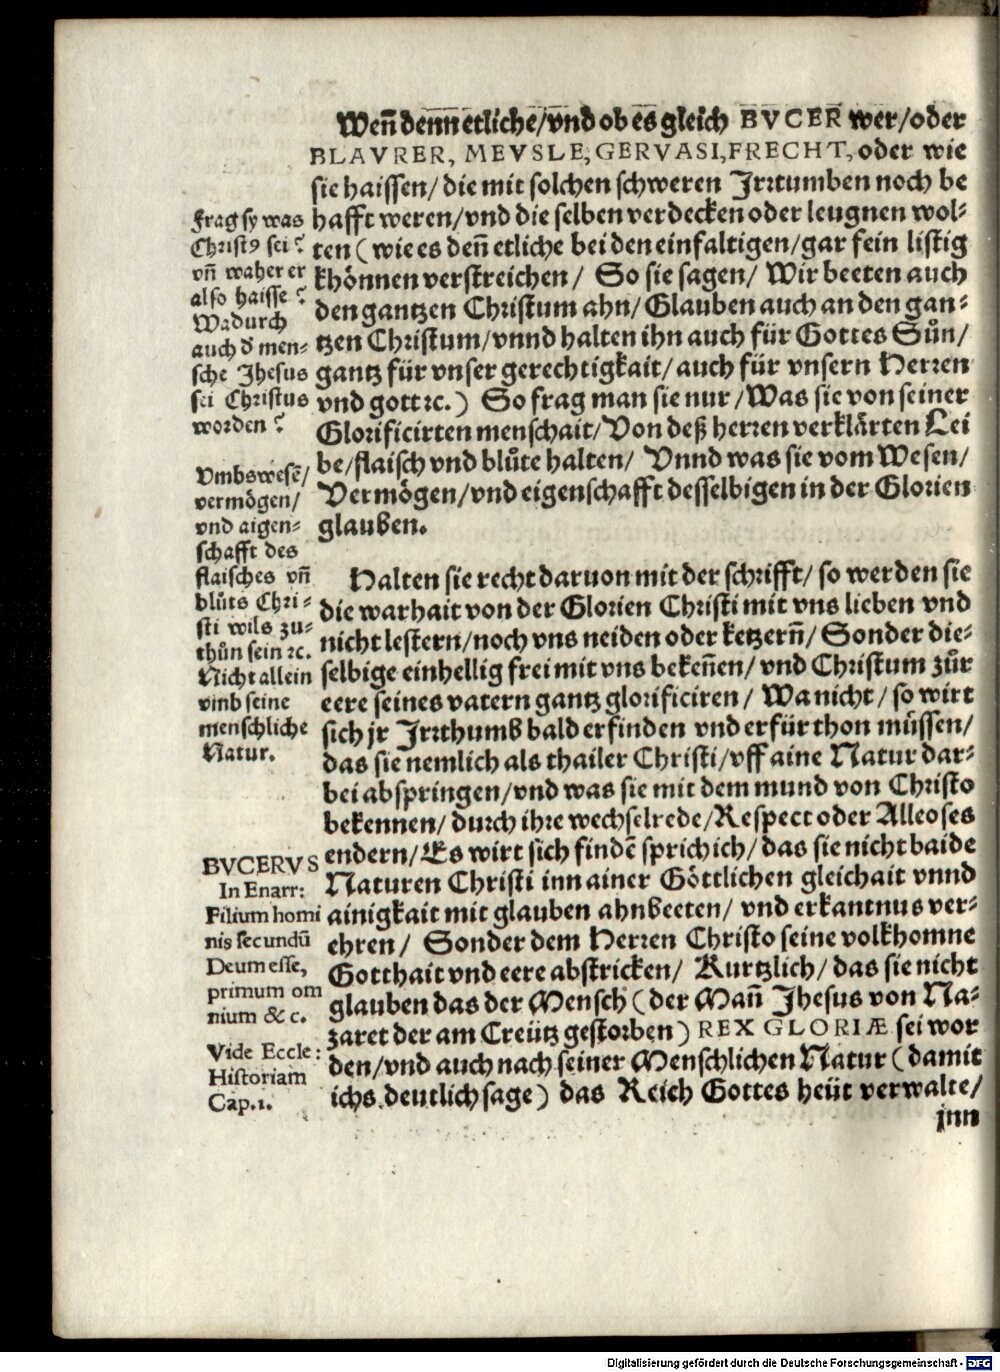 Weñ denn etliche/vnd ob es gleich BVCER wer/oder
BLAVRER, MEVSLE, GERVASI, FRECHT, oder wie
sie haissen/ die mit solchen schweren Irrtumben noch be
hafft weren/vnd die selben verdecken oder leugnen wol-
ten (wie es deñ etliche bei den einfaltigen/gar fein listig
khönnen verstreichen/ So sie sagen/ Wir beeten auch
den gantzen Christum ahn/ Glauben auch an den gan-
tzen Christum/vnnd halten ihn auch für Gottes Sůn/
gantz für vnser gerechtigkait/ auch für vnsern Herren
vnd gott ꝛc.) So frag man sie nur/Was sie von seiner
Glorificirten menschait/Von deß herren verklärten Lei
be/flaisch vnd blůte halten/ Vnnd was sie vom Wesen/
Vermögen/vnd eigenschafft desselbigen in der Glorien
glauben.
Halten sie recht daruon mit der schrifft/ so werden sie
die warhait von der Glorien Christi mit vns lieben vnd
nicht lestern/noch vns neiden oder ketzerñ/ Sonder die-
selbige einhellig frei mit vns bekeñen/ vnd Christum zůr
eere seines vatern gantz glorificiren/ Wa nicht/ so wirt
sich jr Irrthumb bald erfinden vnd erfür thon müssen/
das sie nemlich als thailer Christi/vff aine Natur dar-
bei abspringen/vnd was sie mit dem mund von Christo
bekennen/ durch ihre wechselrede/Respect oder Alleoses
endern/Es wirt sich findẽ sprich ich/ das sie nicht baide
Naturen Christi inn ainer Göttlichen gleichait vnnd
ainigkait mit glauben ahnbeeten/ vnd erkantnus ver-
ehren/ Sonder dem Herren Christo seine volkhomne
Gotthait vnd eere abstricken/ Kurtzlich/ das sie nicht
glauben das der Mensch (der Mañ Jhesus von Na-
zaret der am Creütz gestorben) REX GLORIÆ sei wor
den/vnd auch nach seiner Menschlichen Natur (damit
ichs deutlich sage) das Reich Gottes heüt verwalte/
inn
Frag sy was
Christ⁹ sei?
vñ waher er
also haisse?
Wadurch
auch d̕ men-
sche Jhesus
sei Christus
worden?
Vmbs wesẽ/
vermögen/
vnd aigen-
schafft des
flaisches vñ
blůts Chri-
sti wils zu-
thůn sein ꝛc.
Nicht allein
vmb seine
menschliche
Natur.
BVCERVS
In Enarr:
Filium homi
nis secundũ
Deum esse,
primum om
nium & c.
Vide Eccle:
Historiam
Cap.1.
Digitalisierung gefördert durch die Deutsche Forschungsgemeinschaft - DFG